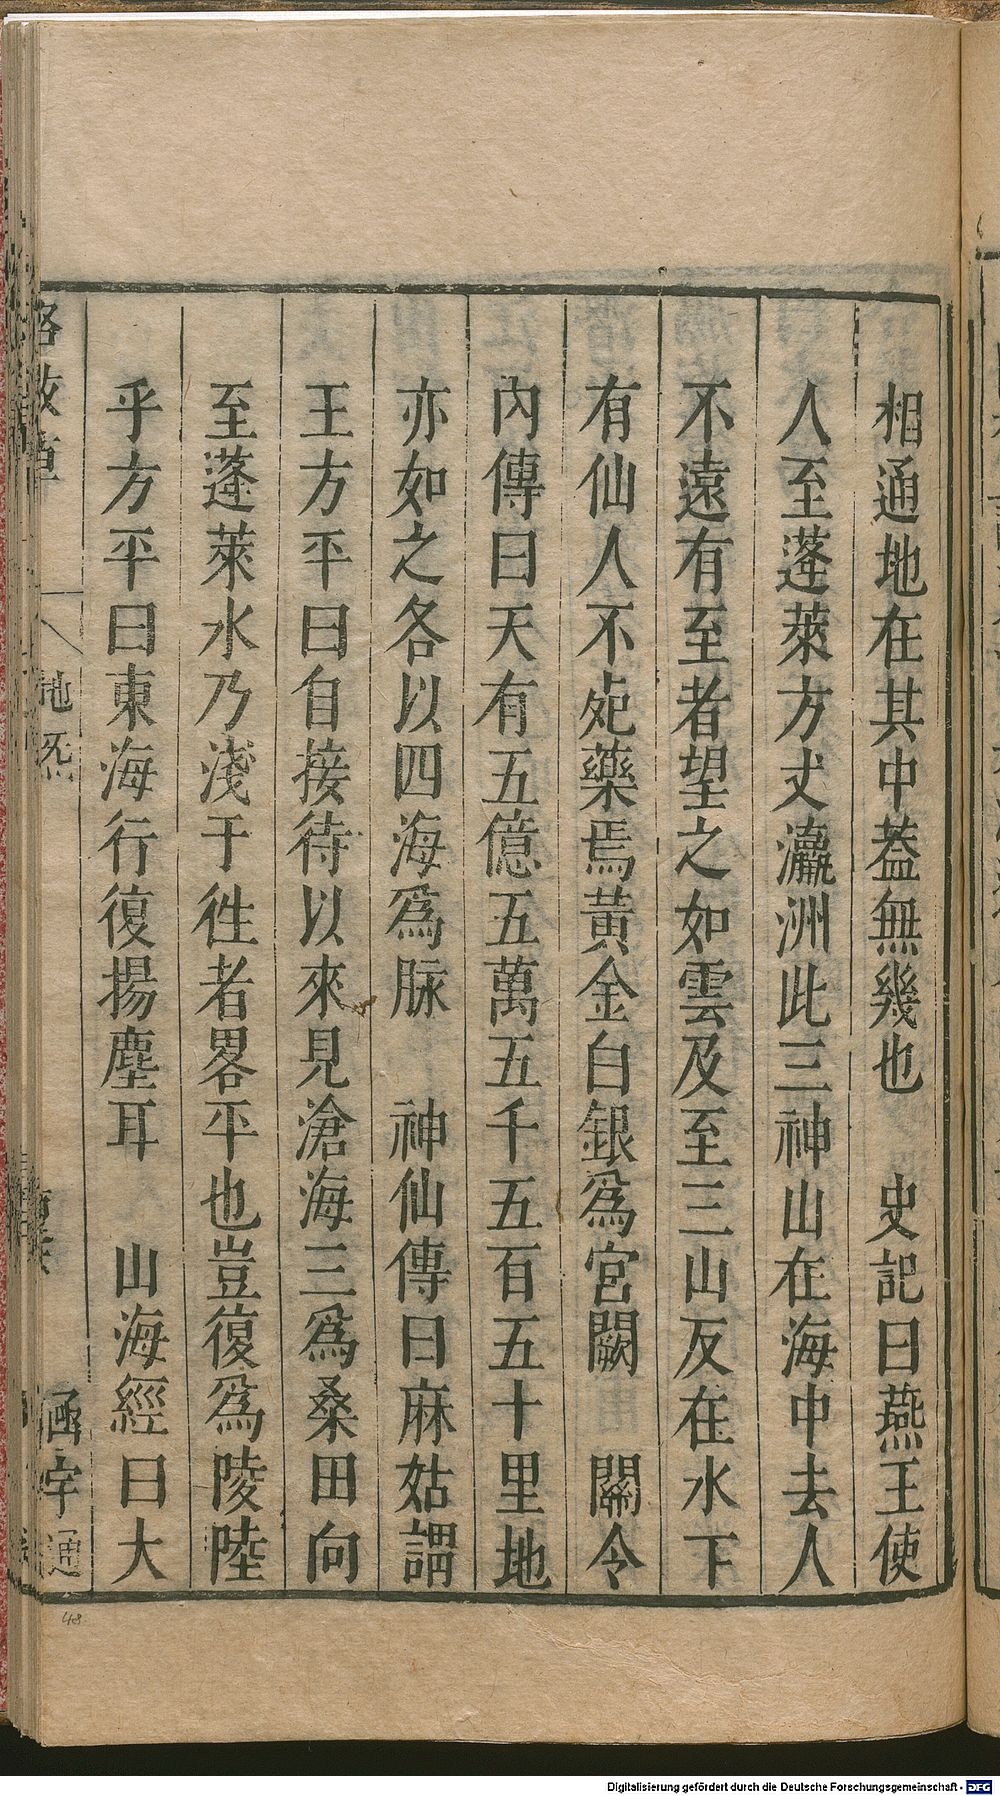 相通地在其中葢無幾也　史記曰燕王使
人至蓬萊方丈瀛洲此三神山在海中去人
不遠有至者望之如雲及至三山反在水下
有仙人不死藥焉黃金白銀爲宮闕　關令
內傳曰天有五億五萬五千五百五十里地
亦如之各以四海爲脉　神仙傳曰麻姑謂
王方平曰自接待以來見滄海三爲桑田向
至蓬萊水乃淺于徃者畧平也豈復爲陵陸
乎方平曰東海行復揚塵耳　山海經曰大
格致草
地
函宇通
48
Digitalisierung gefördert durch die Deutsche Forschungsgemeinschaft - DFG